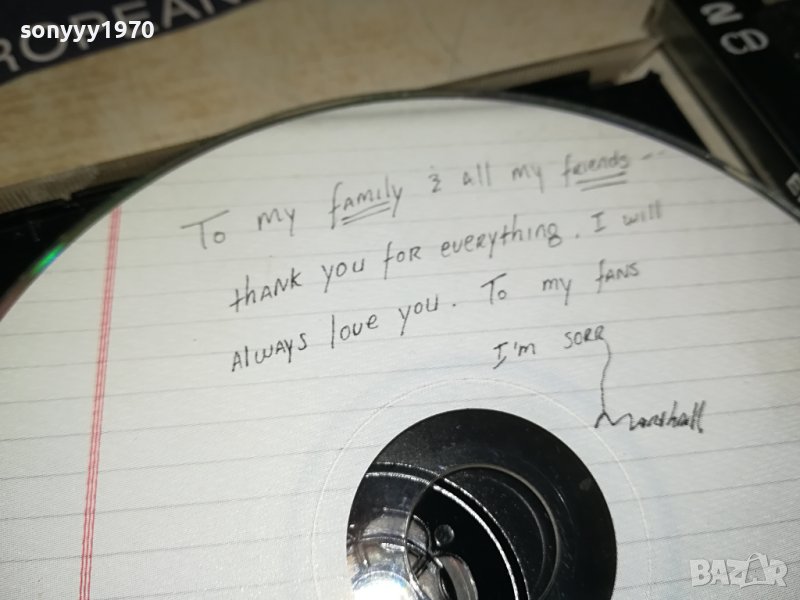 sonyyy1970
ROPEAN
N8
To my family & all my friends --
thank you for everything. I will
Always love you. To my fans
I'm sorr
Marshall
BAZAR